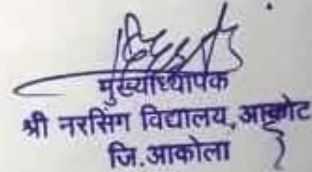 मुख्याध्यापक
श्री नरसिंग विद्यालय, आकोट
जि.आकोला